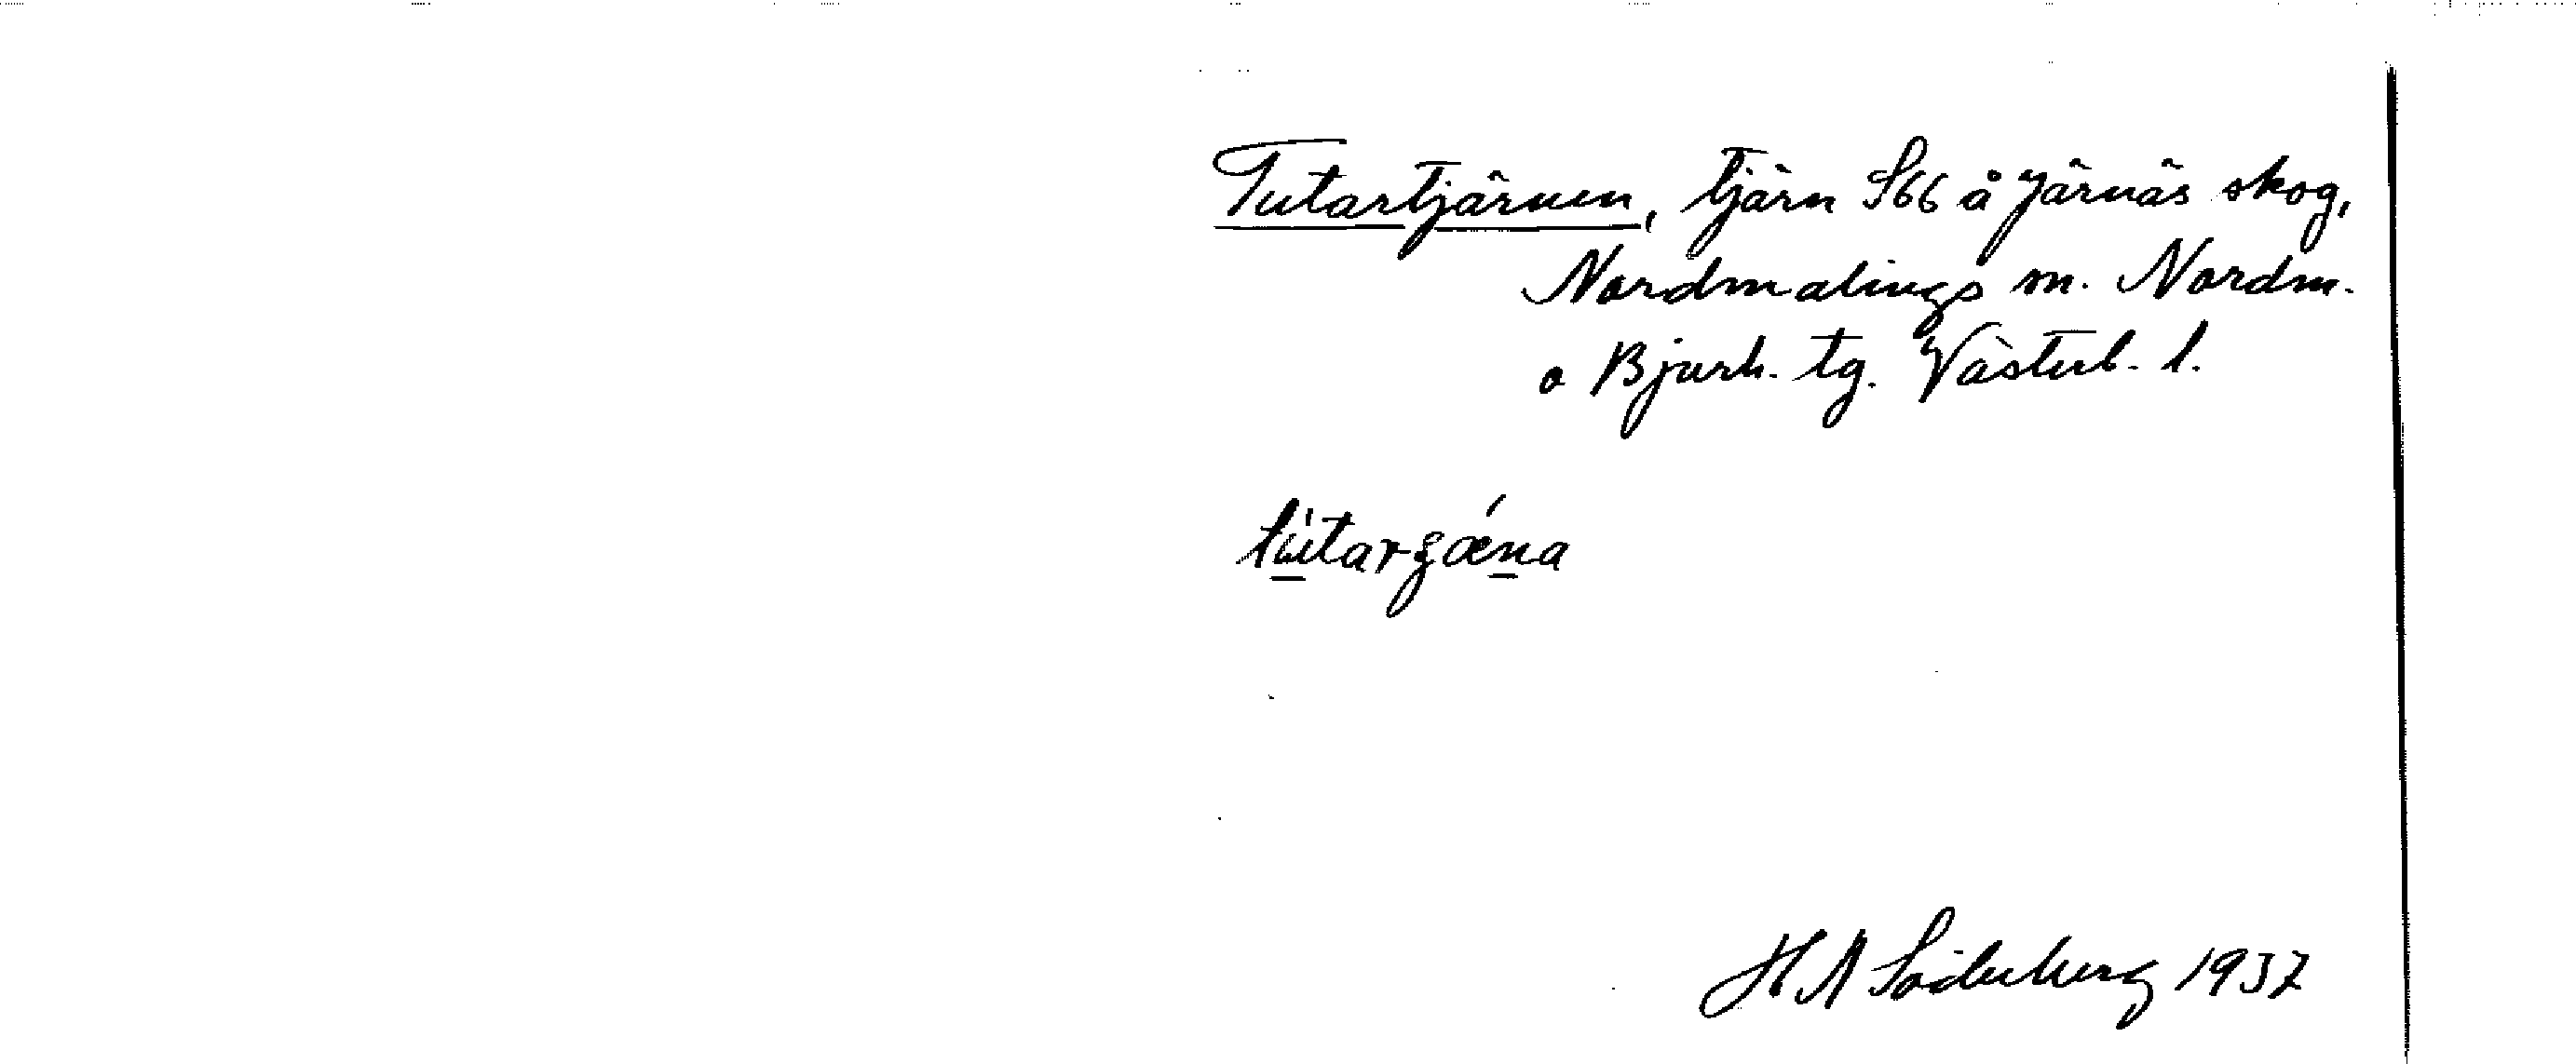 Tutartjärnen, tjärn S66 å Järnäs skog,
Nordmalings sn. Nordm.
o Bjurh. tg. Västerb. l.
H A Söderberg 1937